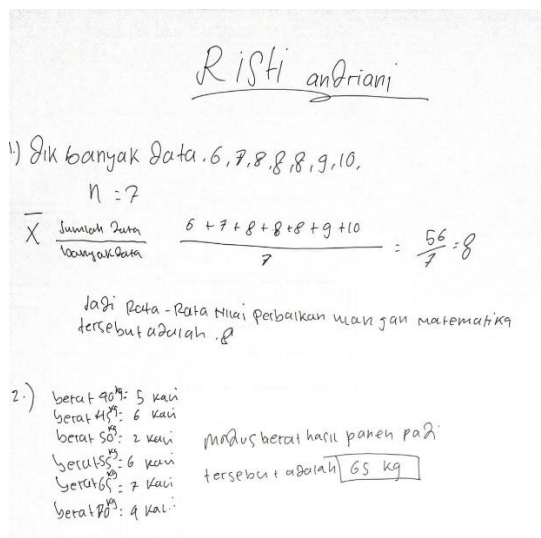 Risti andriani
1.) Dik banyak data. 6, 7, 8, 8, 8, 9, 10,
n = 7
X̅ Jumlah Data / banyak data 6 + 7 + 8 + 8 + 8 + 9 + 10 / 7 = 56 / 7 = 8
Jadi Rata - Rata Nilai Perbaikan ulangan Matematika
tersebut adalah . 8
2.) berat 40 kg : 5 kali
berat 45 kg : 6 kali
berat 50 kg : 2 kali
berat 55 kg : 6 kali
berat 65 kg : 7 kali
berat 70 kg : 4 kali
Modus berat hasil panen padi
tersebut adalah 65 kg